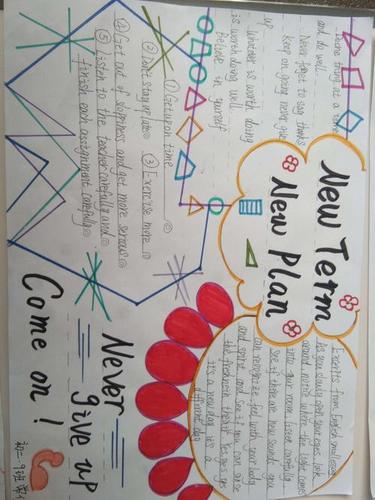 one thing at a time
and do well
Never forget to say thanks
keep on going never give
up
Whatever is worth doing
is worth doing well.
Believe in yourself
New Term
New Plan
① Get up on time
② Don't stay up late
③ Exercise more
④ Get out of sloppiness and get more serious
⑤ Listen to the teacher carefully and
finish each assignment carefully
Excerpts from English small essay
As you slowly open your eyes, look
around, notice where the light comes
into your room; listen carefully
see if there are new sounds you
can recognize; feel with your body
and spirit, and see if you can sense
the freshness in the air. Yes, yes, yes
it's a new day, it's a
different day
Never
give up
Come on!